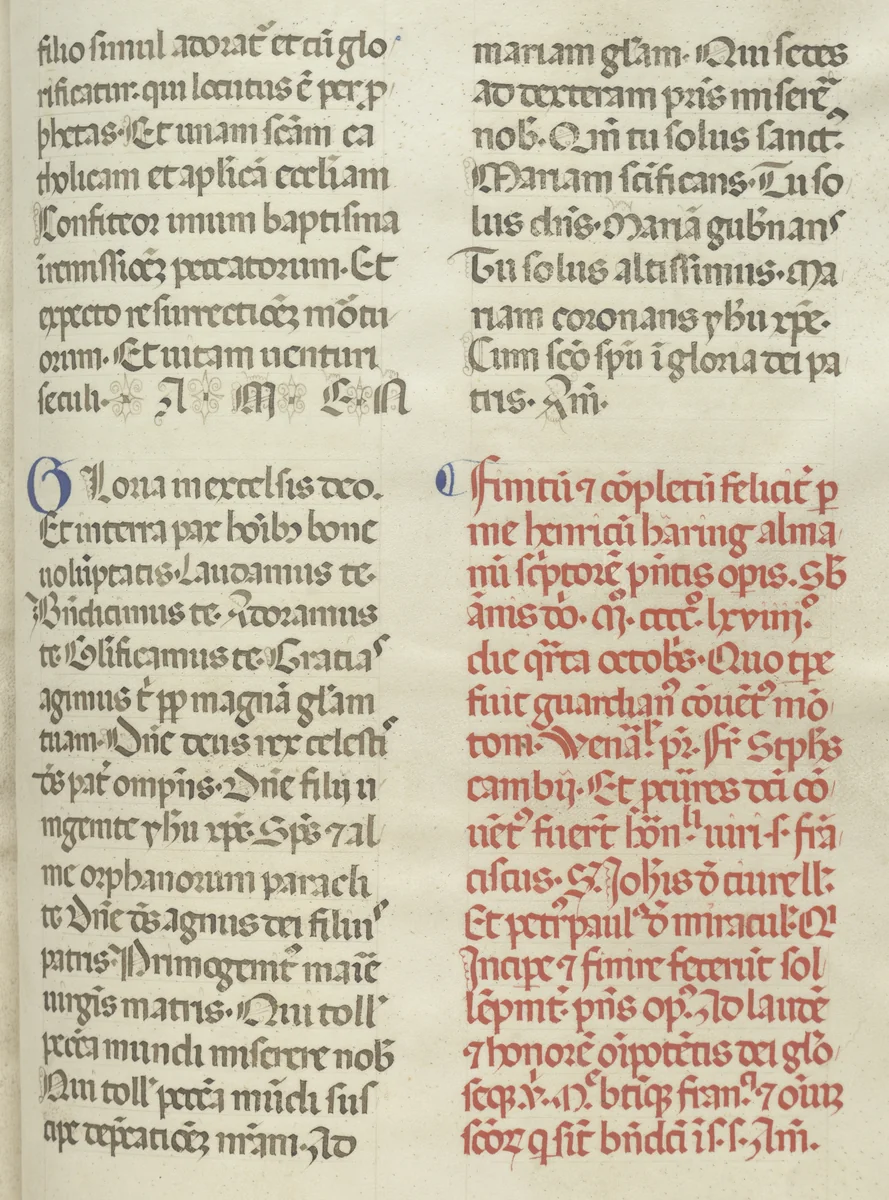 filio simul adorat᷑ et cū glo
rificatur: qui locutus ē per ꝓ
phetas. Et unam scām ca
tholicam et aplicā eccliam
Confiteor unum baptisma
ī remissiōeꝫ peccatorum. Et
expecto resurrectiōeꝫ mōtu
orum. Et uitam uenturi
seculi. A. M. E. N
G Loria in excelsis deo.
Et in terra pax hoībꝰ bone
uolūptatis. Laudamus te.
Bn̄dicimus te. Adoramus
te. Glīficamus te. Gracias
agimus t' ꝓp magnā glam
tuam. Dn̄e deus rex celesti
ds̄ pat' omp̄ns. Dn̄e filij u
nigenite yhū xp̄e. Sp̄s ⁊ al
me orphanorum paracli
te Dn̄e ds̄ agnus dei filius
patris. Primogenitꝰ marie
uirgīs matris. Qui toll'
pccā mundi miserere nob̄
Qui toll' peccā mūdi sus
cipe dep̄catiōeꝫ nr̄am. Ad
mariam glam. Qui sedes
ad dexteram pr̄is miserē
nob̄. Qm̄ tu solus sanct.
Mariam scīficans. Tu so
lus dn̄s. Mariā gub̄nans
Tu solus altissimus. Ma
riam coronans yhū xp̄e.
Cum scō spū ī gloria dei pa
tris. Am̄.
Finitū ⁊ cōpletū felicit' p
me henricū haring alma
nū sc'ptorē pn̄tis opis. Sb̄
ānis dō. Mº. ccccº. lxviiijº.
die qr̄ta octob̄s. Quo tpe
fuit guardianꝰ cōuētꝰ mō
tom. Venāl' pr̄. Fr̄ Stephs
cambij. Et
uētꝰ fuer̄t uiri. s. frā
ciscus. S. Joh̄is d' ciurell'.
Et petrꝰ paulꝰ d' miracul'. Qi
Incipe ⁊ finire fecerūt sol
lēpnit'. pn̄s opꝰ. Ad laudē
⁊ honorē oīpotētis dei glō
seqꝫ v'. Me. btiqꝫ fran. ⁊ oīuꝫ
scōꝝ q sit bn̄dcī ī s. s. Am̄.